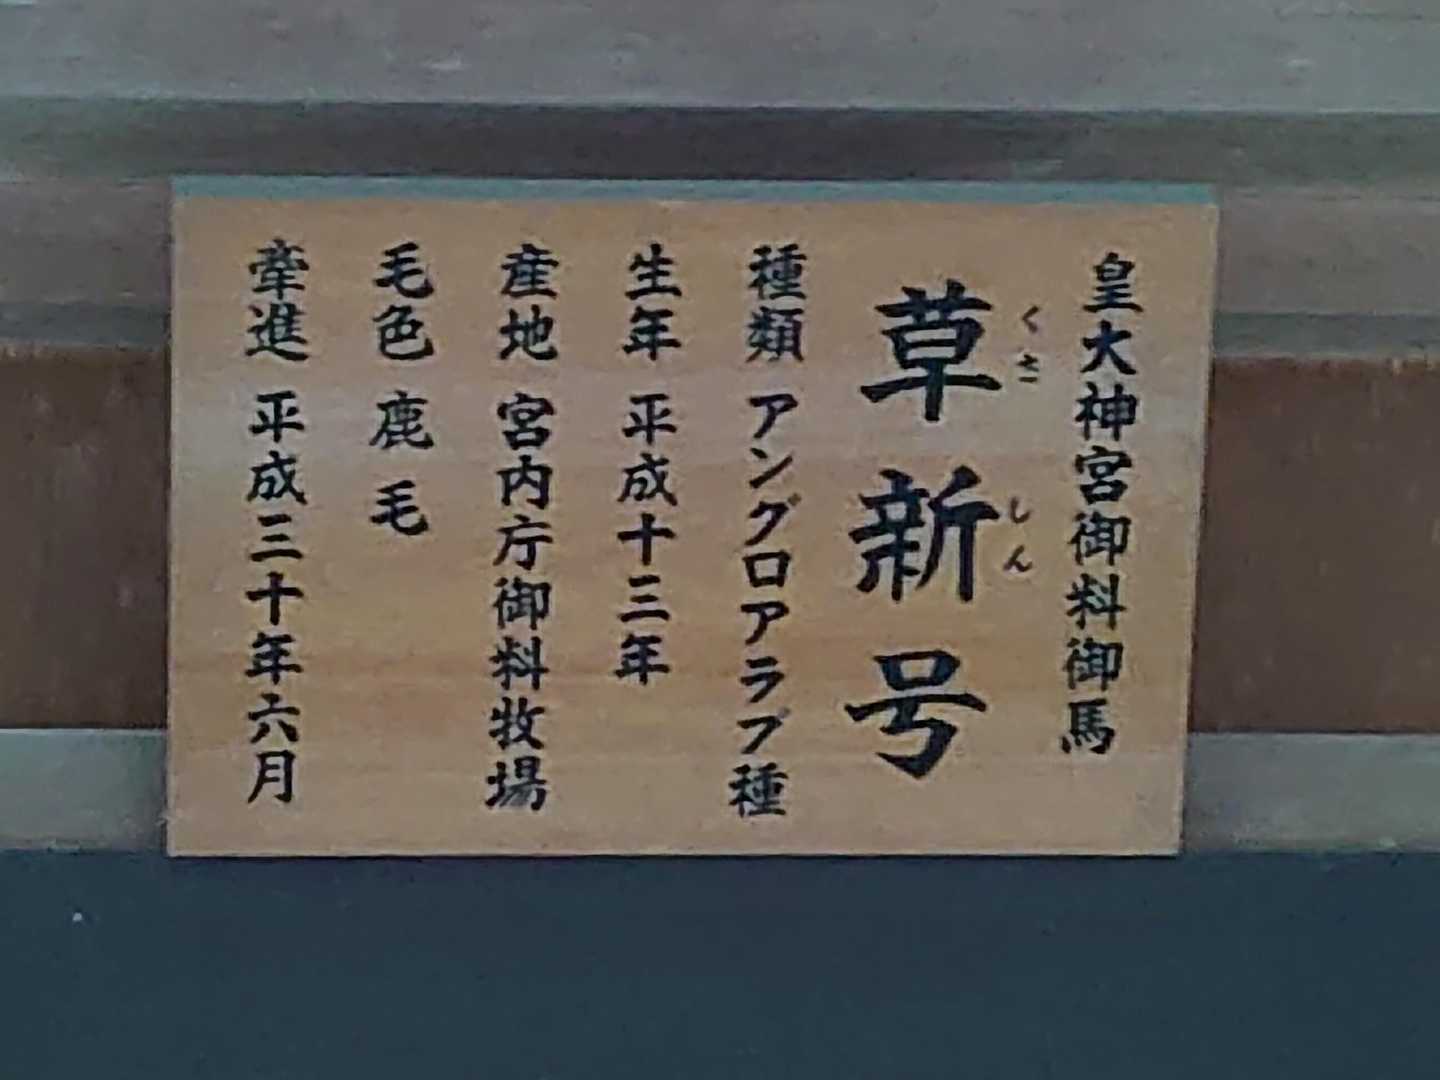 皇大神宮御料御馬
草新号
くさ
しん
種類 アングロアラブ種
生年 平成十三年
産地 宮内庁御料牧場
毛色 鹿毛
牽進 平成三十年六月